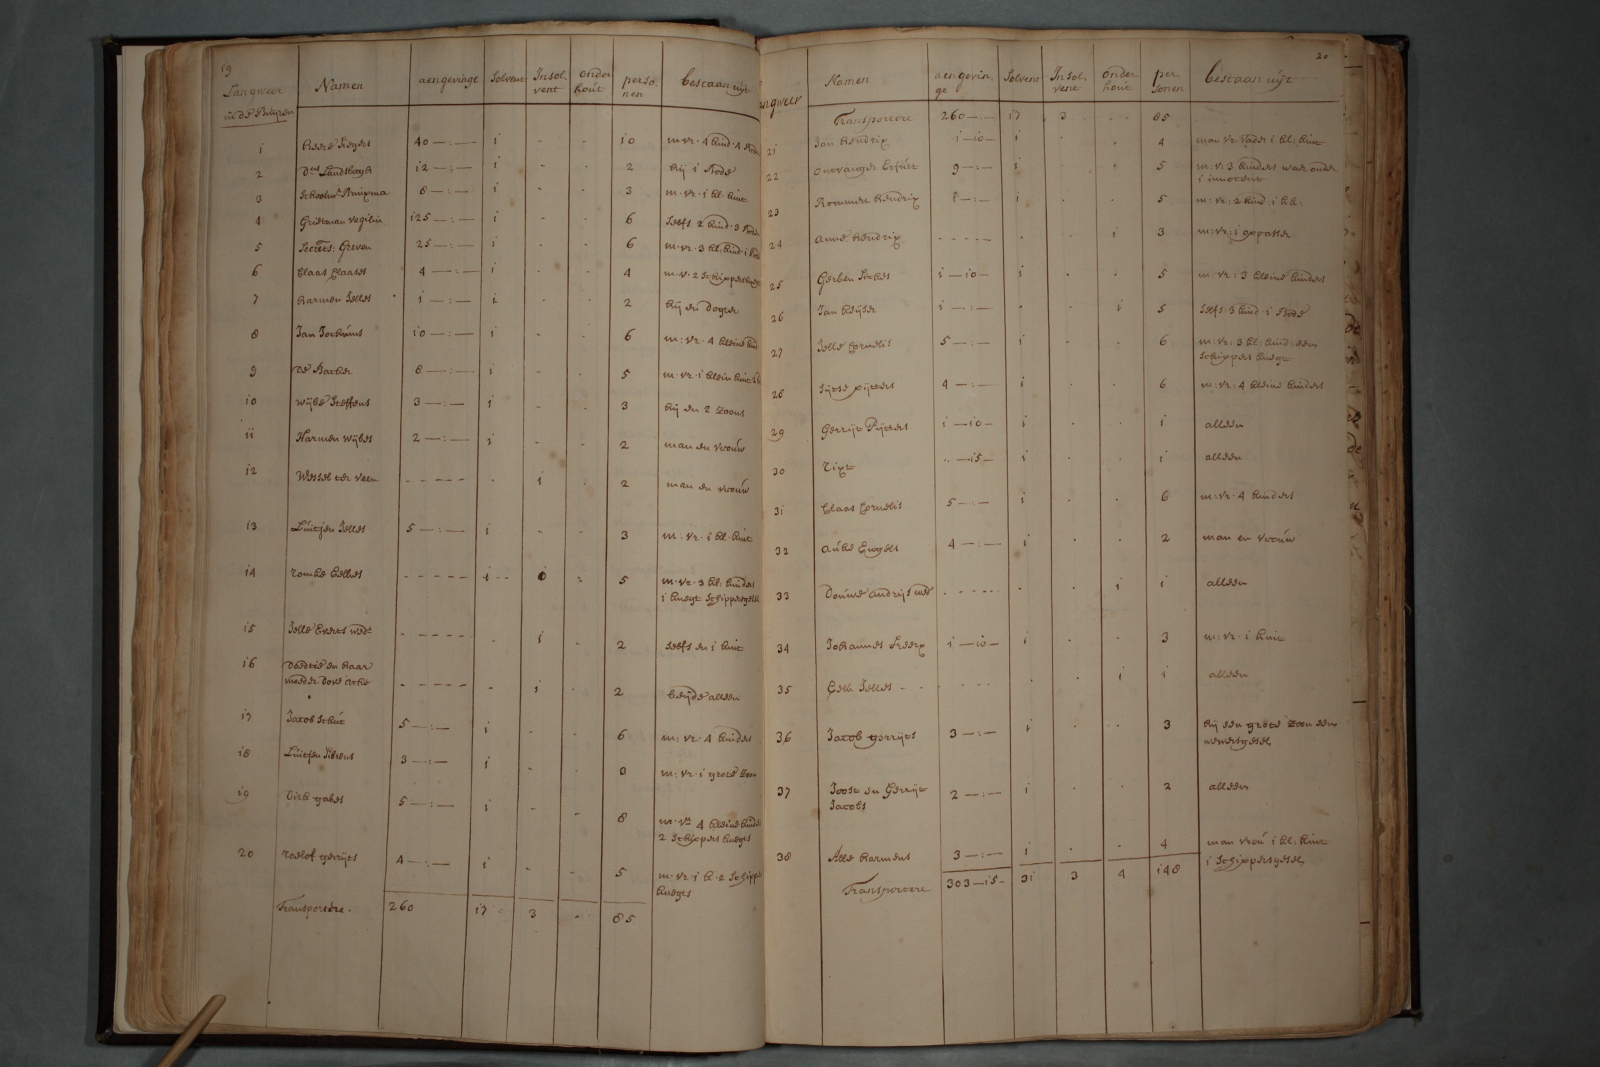 19
Langweer in de Buijren | Namen | aengevinge | Solvent | Insolvent | onderhout | personen | bestaan uijt
1 | 40 —:— | 1 | - | - | 10 | m. vr. 4 kind. 4
2 | Ds Landsbergh | 12 —:— | 1 | - | - | 2 | hij 1 bode
3 | Schoolmr Bruijnsma | 8 —:— | 1 | - | - | 3 | m. vr. 1 kl. kint
4 | Grietman Vegilin | 125 —:— | 1 | - | - | 6 | selfs 2 kind. 3
5 | Secrets: Greven | 25 —:— | 1 | - | - | 6 | m. vr. 3 kl. kind. 1
6 | Claas Claases | 4 —:— | 1 | - | - | 4 | m. v. 2 Schippers
7 | Harmen Jelles | 1 —:— | 1 | - | - | 2 | hij en dogter
8 | Jan Jochums | 10 —:— | 1 | - | - | 6 | m: vr. 4 kleine kind
9 | de Backer | 8 —:— | 1 | - | - | 5 | m. vr. 1 klein kint
10 | Wijbe Steffens | 3 —:— | 1 | - | - | 3 | hij en 2 zoons
11 | Harmen Wijbes | 2 —:— | 1 | - | - | 2 | man en vrouw
12 | Wessel ter Veen | - - - - - | . | 1 | . | 2 | man en vrouw
13 | Luitjen Jelles | 5 —:— | 1 | - | - | 3 | m: vr. 1 kl. kint
14 | Romke Eelkes | - - - - - | 1 | 0 | : | 5 | m. vr. 3 kl: kinders
1 knegt Schippersgesel
15 | Jelle Everts wede | - - - - - | 1 | - | 2 | selfs en 1 kint
16 | Doedtie en haar
moeder dove Artie | - - - - - | - | 1 | - | 2 | beijde alleen
17 | Jacob Schut | 5 —:— | 1 | - | - | 6 | m: vr. 4 kinders
18 | Luitjen Sibrens | 3 —:— | 1 | - | - | 3 | m: vr. 1 grote zoon
19 | Dirk gabes | 5 —:— | 1 | - | - | 8 | m. vr 4 kleine kinders
2 Schippers knegts
20 | Roelof gerrijts | 4 —:— | 1 | - | - | 5 | m. vr. 1 k. 2 Schippers
knegts
Transportere. | 260 | 17 | 3 | - | 85
20
Langweer | Namen | aengevinge | Solvent | Insolvent | onderhout | personen | bestaan uijt
Transportere | 260 —:— | 17 | 3 | . | 85
21 | Jan Hendrix | 1—10— | 1 | . | 4 | man vr vader 1 kl: kint
22 | ontvanger | 9 —:— | 1 | . | . | 5 | m: vr: 3 kinders waer onder
1 innocent
23 | Rommert Hendrix | 1 —:— | 1 | . | . | 5 | m: vr: 2 kind. 1 kl:
24 | Anne Hendrix | - - - - - | . | . | 1 | 3 | m: vr: 1
25 | Gerben | 1—10— | 1 | . | . | 5 | m: vr: 3 kleine kinders
26 | Jan | 1 —:— | . | . | 1 | 5 | selfs 3 kind. 1 bode
27 | Jelle Cornelis | 5 —:— | 1 | . | . | 6 | m: vr: 3 kl: kind: een
Schippers knegt
28 | Sijtse pijtters | 4 —:— | 1 | . | . | 6 | m: vr: 4 kleine kinders
29 | Gerrijt Pijtters | 1—10— | 1 | . | . | 1 | alleen
30 | Tixt | .. —15— | 1 | . | . | 1 | alleen
31 | Claas Cornelis | 5 —:— | 1 | . | . | 6 | m: vr. 4 kinders
32 | Auke Engels | 4 —:— | 1 | . | . | 2 | man en vrouw
33 | Douwe Andrijs wed | - - - - - | . | . | 1 | 1 | alleen
34 | Johannes | 1—10— | 1 | . | . | 3 | m: vr. 1 kint
35 | Eelk Jelles | - - - - - | . | . | 1 | 1 | alleen
36 | Jacob gerrijts | 3 —:— | 1 | . | . | 3 | hij een grote zoon een
weversgesel
37 | Joost en Gerrijt
Jacobs | 2 —:— | 1 | . | . | 2 | alleen
38 | Atte Harmens | 3 —:— | 1 | . | . | 4 | man vrou 1 kl: kint
1 Schippersgesel
Transportere | 303—15— | 31 | 3 | 4 | 148